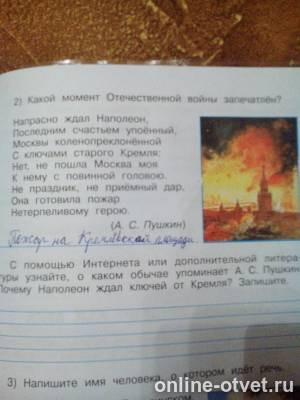 2) Какой момент Отечественной войны запечатлён?
Напрасно ждал Наполеон,
Последним счастьем упоённый,
Москвы коленопреклонённой
С ключами старого Кремля:
Нет, не пошла Москва моя
К нему с повинной головою.
Не праздник, не приёмный дар,
Она готовила пожар
Нетерпеливому герою.
(А. С. Пушкин)
Пожар на Кремлёвской площади.
С помощью Интернета или дополнительной литера-
туры узнайте, о каком обычае упоминает А. С. Пушкин
Почему Наполеон ждал ключей от Кремля? Запишите.
3) Напишите имя человека, о котором идёт речь.
online-otvet.ru